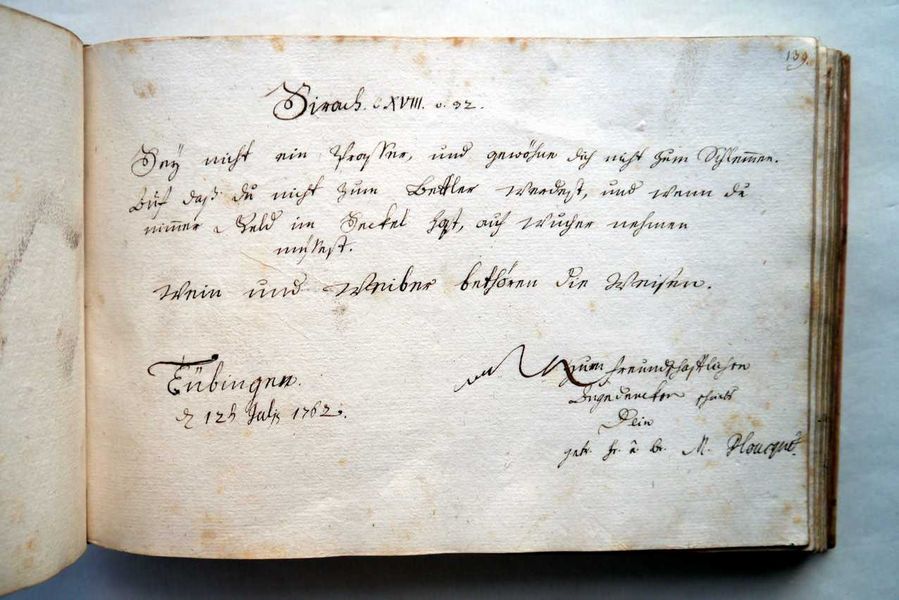 139.
Sirach. c XVIII. v. 32.
Sey nicht ein Prasser, und gewöhne dich nicht zum Schlemmen.
Auf daß du nicht zum Bettler werdest, und wenn du
nimmer Geld im Seckel hast, auf Wucher nehmen
müssest.
Wein und Weiber bethören die Weisen.
Tübingen.
d 12t Julj 1762.
Zum freundschaftlichen
Angedencken schrieb
Dein
getr. Fr. & Br. M. Ploucquet.